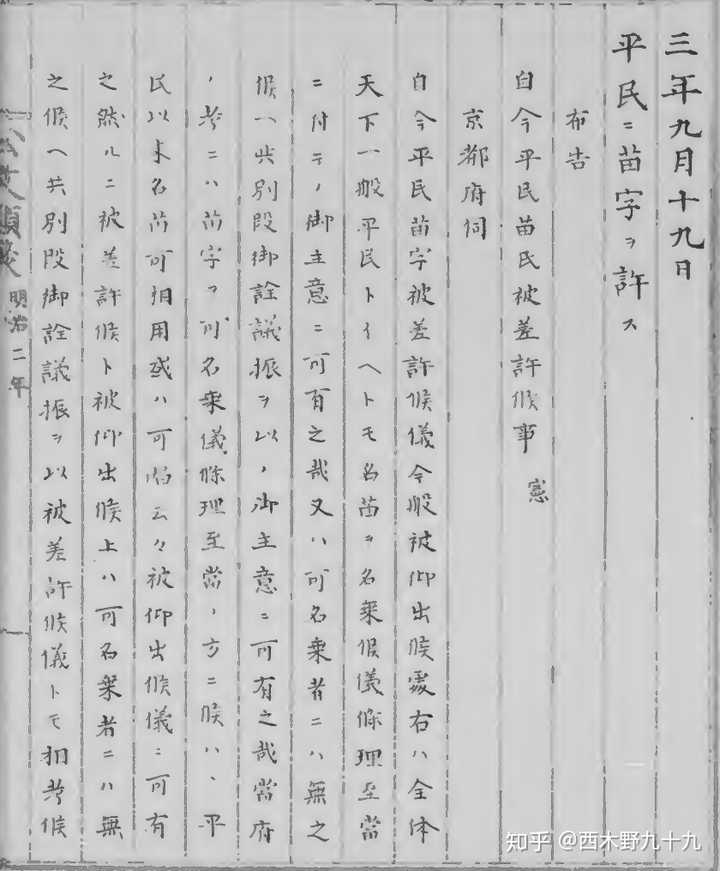 三年九月十九日
平民ニ苗字ヲ許ス
布告
自今平民苗氏被差許候事 憲
京都府伺
自今平民苗字被差許候儀今般被仰出候處右ハ全体
天下一般平民トイヘトモ名苗ヲ名乗候儀條理至當
ニ付テノ御主意ニ可有之哉又ハ可名乗者ニハ無之
候ヘ共別段御詮議振ヲ以ノ御主意ニ可有之哉當府
ノ考ニハ苗字ヲ可名乗儀條理至當ノ方ニ候ハヽ平
民以来名苗可相用或ハ可唱云々被仰出候儀ニ可有
之然ルニ被差許候ト被仰出候上ハ可名乗者ニハ無
之候ヘ共別段御詮議振ヲ以被差許候儀トモ相考候
公文類
明治二年
知乎 @西木野九十九